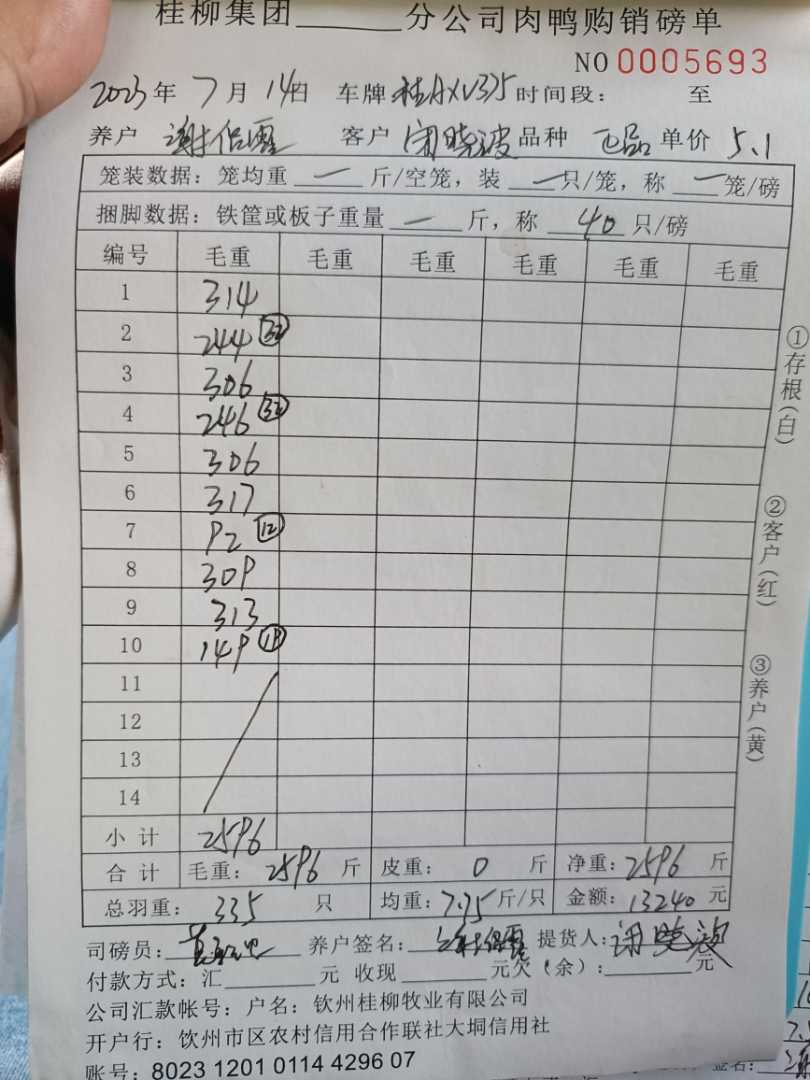 桂柳集团______分公司肉鸭购销磅单
NO 0005693
2023年7月14日 车牌 桂AXV335 时间段： 至
养户 谢侣霞 客户 闭晓波 品种 正品 单价 5.1
笼装数据：笼均重 一 斤/空笼，装 一 只/笼，称 一 笼/磅
捆脚数据：铁筐或板子重量 一 斤，称 40 只/磅
编号 毛重 毛重 毛重 毛重 毛重 毛重
1 314
2 244
3 306
4 246
5 306
6 317
7 92 ⑫
8 309
9 313
10 149
11
12
13
14
小计 2596
合计 毛重： 2596 斤 皮重： 0 斤 净重：2596 斤
总羽重： 335 只 均重：7.75斤/只 金额：13240 元
司磅员： 养户签名： 谢侣霞 提货人：闭晓波
付款方式：汇______元 收现______元欠（余）：______元
公司汇款帐号：户名：钦州桂柳牧业有限公司
开户行：钦州市区农村信用合作联社大垌信用社
账号：8023 1201 0114 4296 07
①存根（白）
②客户（红）
③养户（黄）